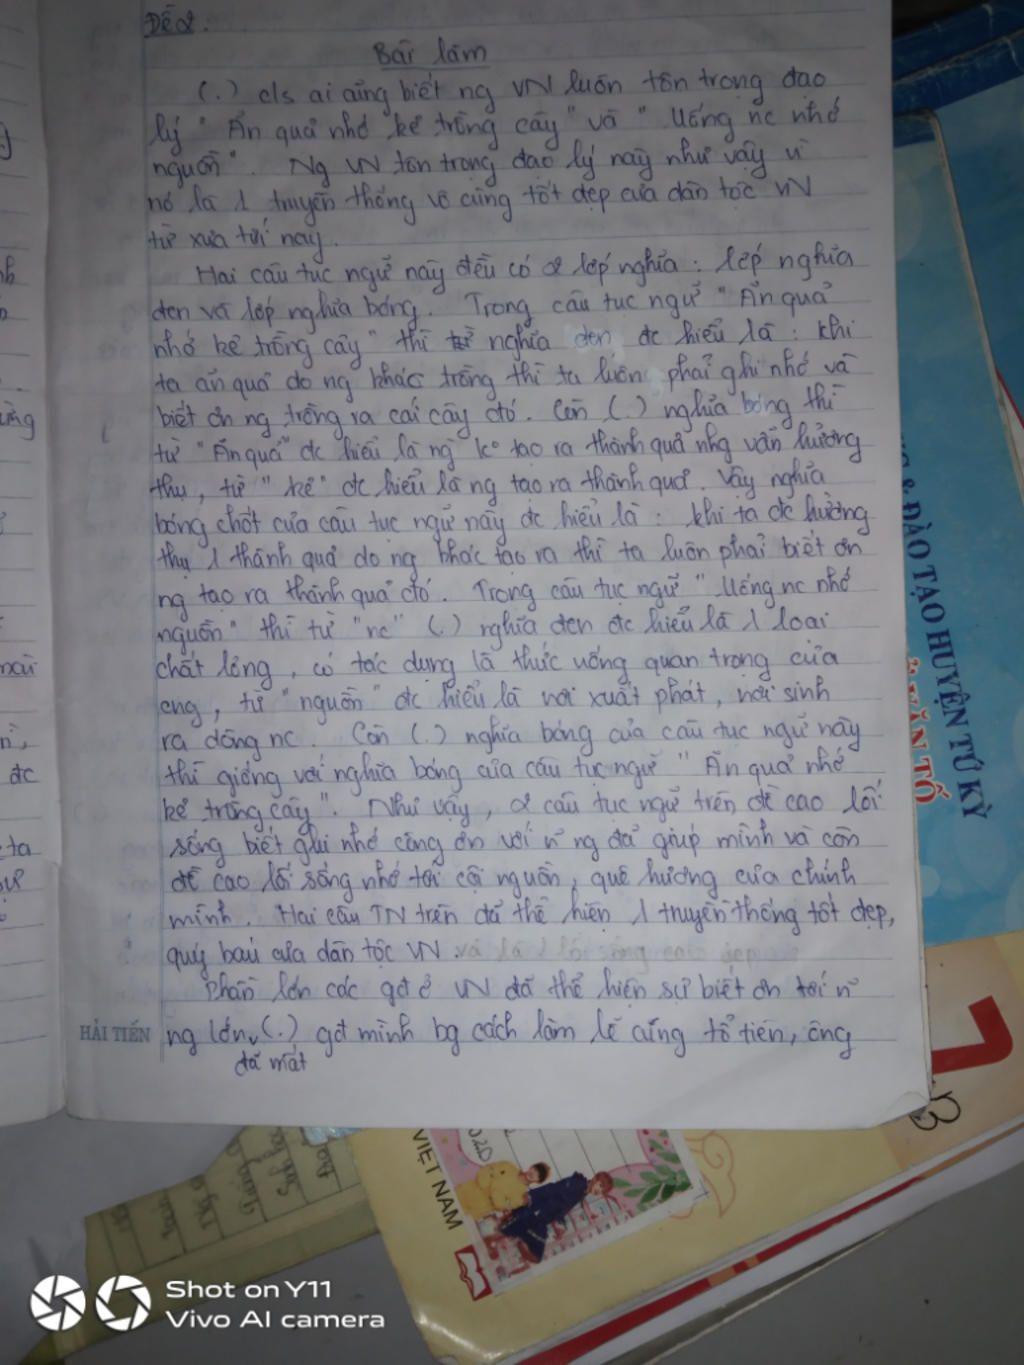 Đề 2.
Bài làm
(.) c/s ai cũng biết ng VN luôn tôn trọng đạo
lý "Ăn quả nhớ kẻ trồng cây" và "Uống nc nhớ
nguồn". Ng VN tôn trọng đạo lý này như vậy vì
nó là 1 truyền thống vô cùng tốt đẹp của dân tộc VN
từ xưa tới nay.
Hai câu tục ngữ này đều có 2 lớp nghĩa: lớp nghĩa
đen và lớp nghĩa bóng. Trong câu tục ngữ "Ăn quả
nhớ kẻ trồng cây" thì nghĩa đen đc hiểu là: khi
ta ăn quả do ng khác trồng thì ta luôn phải ghi nhớ và
biết ơn ng trồng ra cái cây đó. Còn (.) nghĩa bóng thì
từ "Ăn quả" đc hiểu là ng ko tạo ra thành quả nhg vẫn hưởng
thụ, từ "kẻ" đc hiểu là ng tạo ra thành quả. Vậy nghĩa
bóng chốt của câu tục ngữ này đc hiểu là: khi ta đc hưởng
thụ 1 thành quả do ng khác tạo ra thì ta luôn phải biết ơn
ng tạo ra thành quả đó. Trong câu tục ngữ "Uống nc nhớ
nguồn" thì từ "nc" (.) nghĩa đen đc hiểu là 1 loại
chất lỏng, có tác dụng là thức uống quan trọng của
cng, từ "nguồn" đc hiểu là nơi xuất phát, nơi sinh
ra dòng nc. Còn (.) nghĩa bóng của câu tục ngữ này
thì giống với nghĩa bóng của câu tục ngữ "Ăn quả nhớ
kẻ trồng cây". Như vậy, 2 câu tục ngữ trên đề cao lối
sống biết ghi nhớ công ơn với n~ ng đã giúp mình và còn
đề cao lối sống nhớ tới cội nguồn, quê hương của chính
mình. Hai câu TN trên đã thể hiện 1 truyền thống tốt đẹp,
quý báu của dân tộc VN và là 1 lối sống cao đẹp
Phần lớn các gđ ở VN đã thể hiện sự biết ơn tới n~
ng lớn (.) gđ mình bg cách làm lễ cúng tổ tiên, ông
đã mất
HẢI TIẾN
& ĐÀO TẠO HUYỆN TỨ KỲ
VĂN TỐ
7
B
VIỆT NAM
Shot on Y11
Vivo AI camera